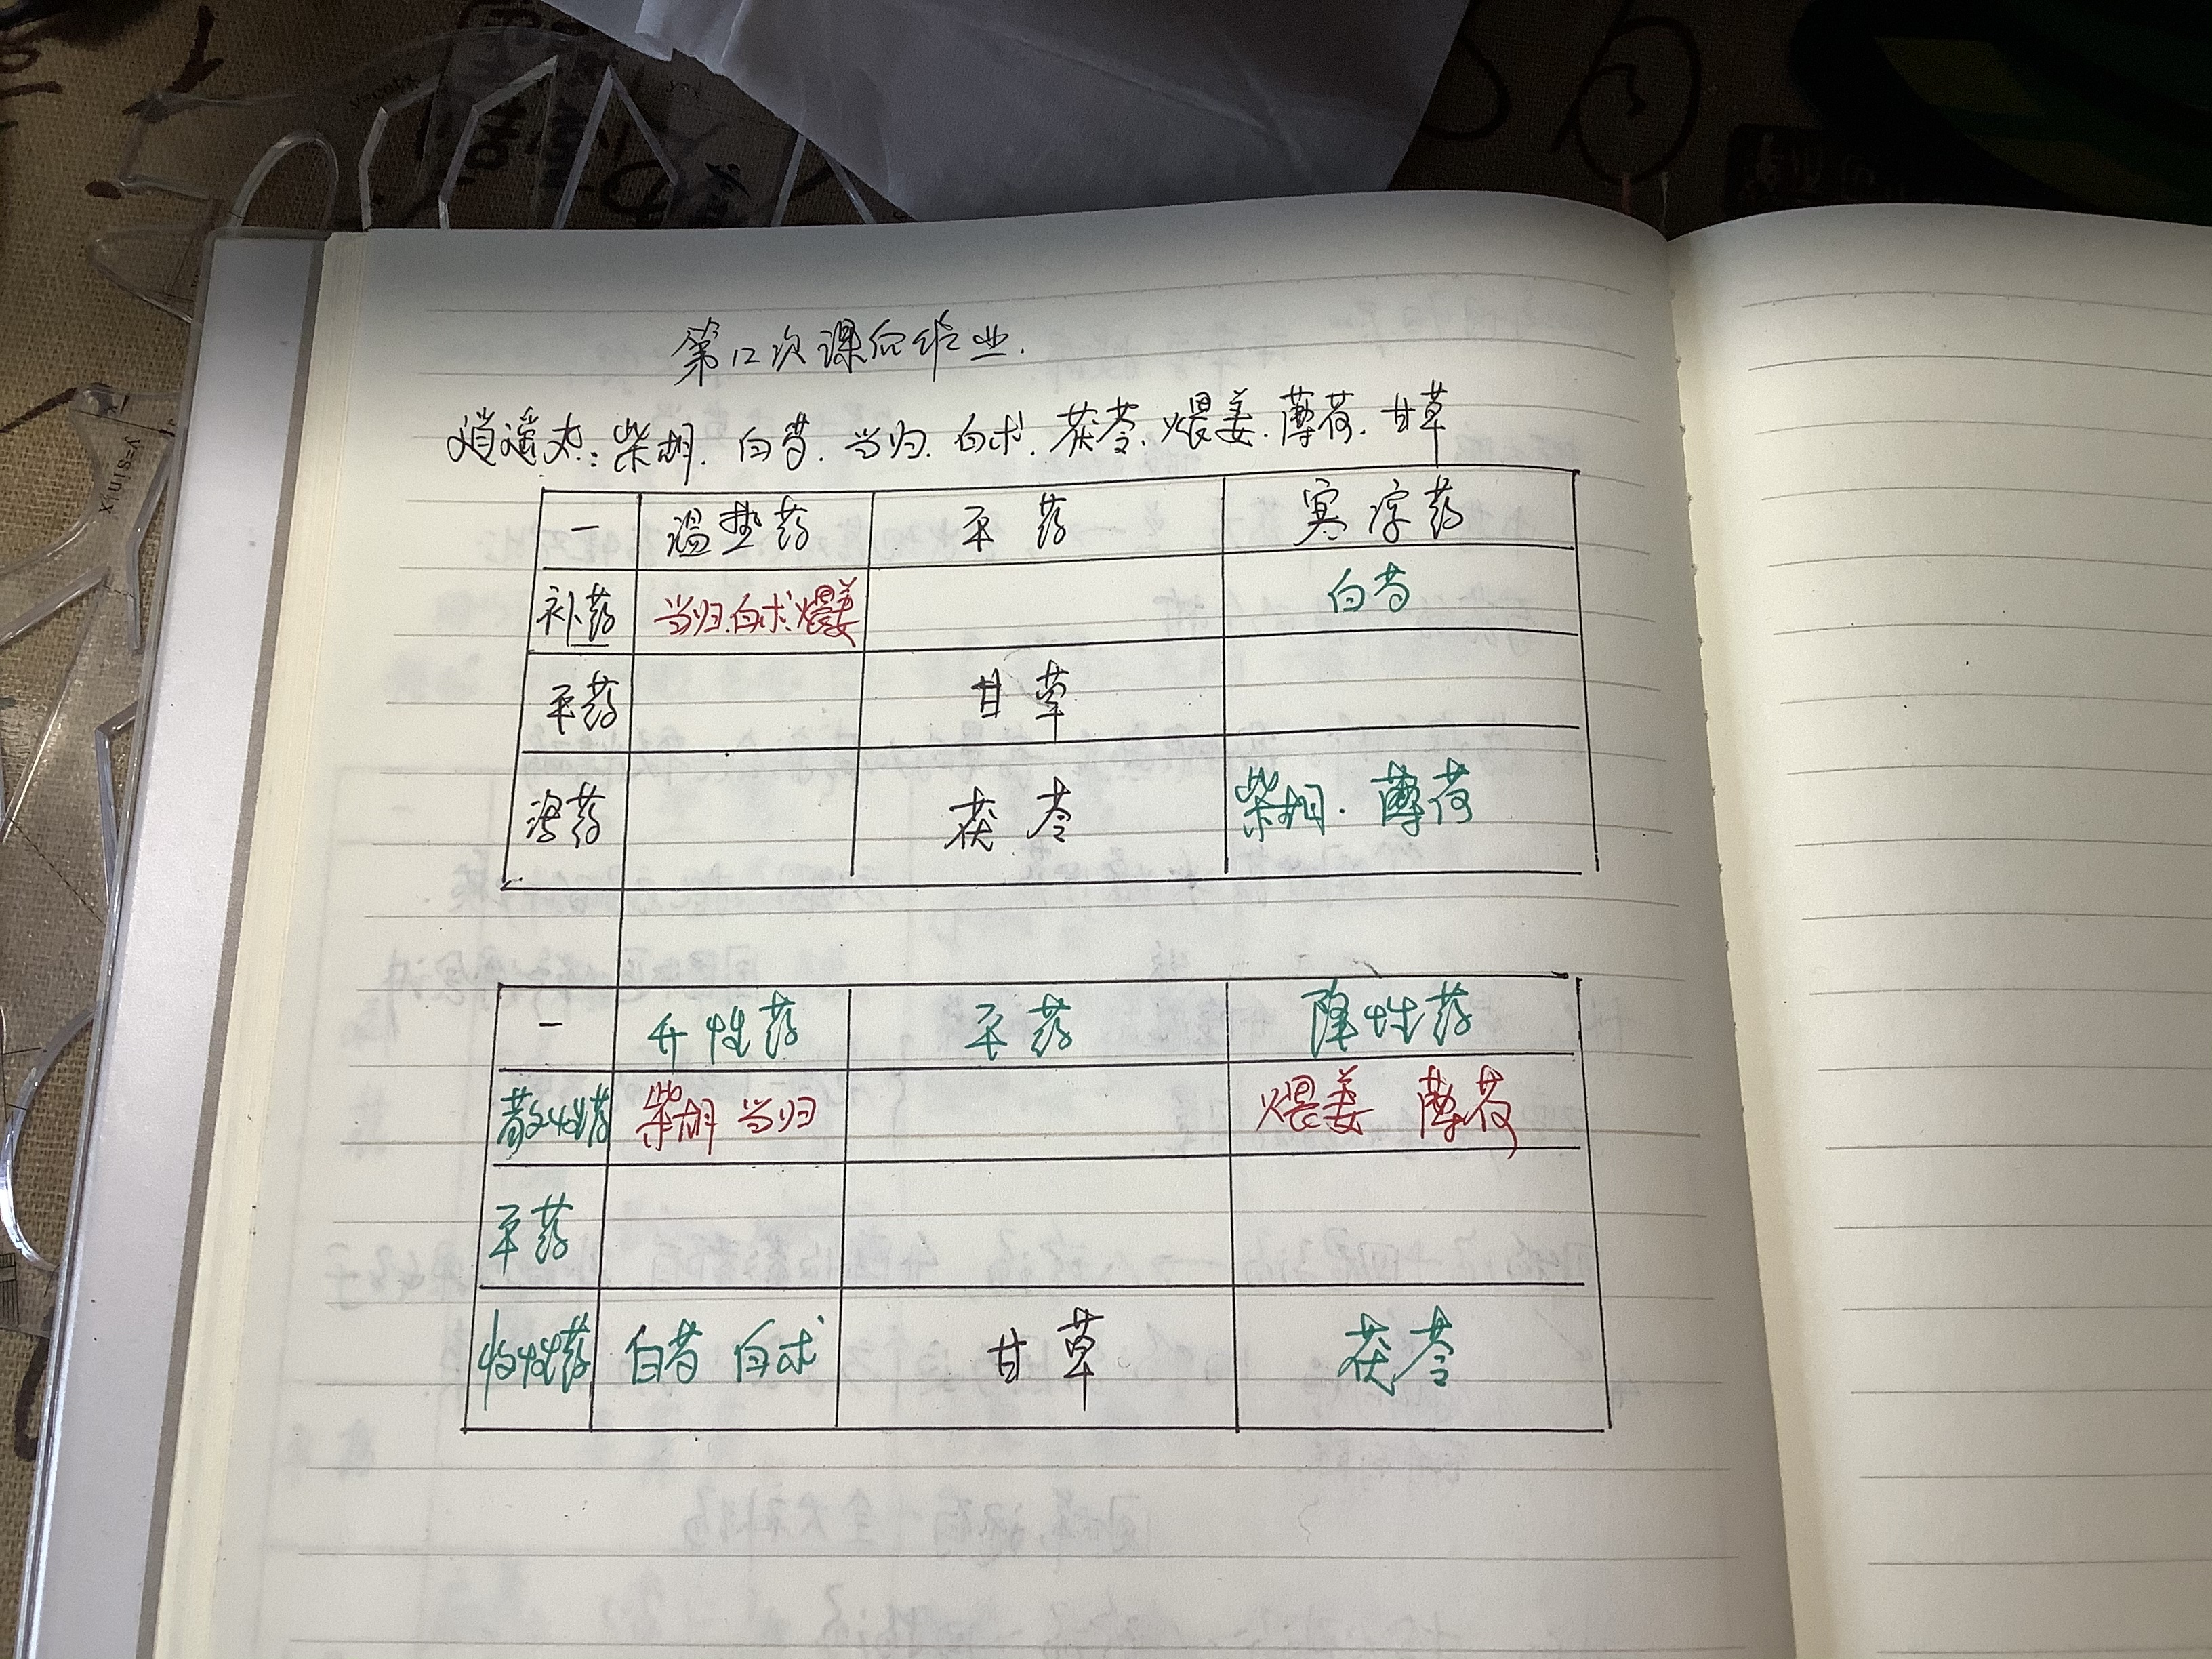 第12次课后作业.
逍遥丸:柴胡.白芍.当归.白术.茯苓.煨姜.薄荷.甘草
一 温热药 平药 寒凉药
补药 当归.白术.煨姜 白芍
平药 甘草
泻药 茯苓 柴胡.薄荷
一 升性药 平药 降性药
散性药 柴胡 当归 煨姜 薄荷
平药
收性药 白芍 白术 甘草 茯苓
y=sinx